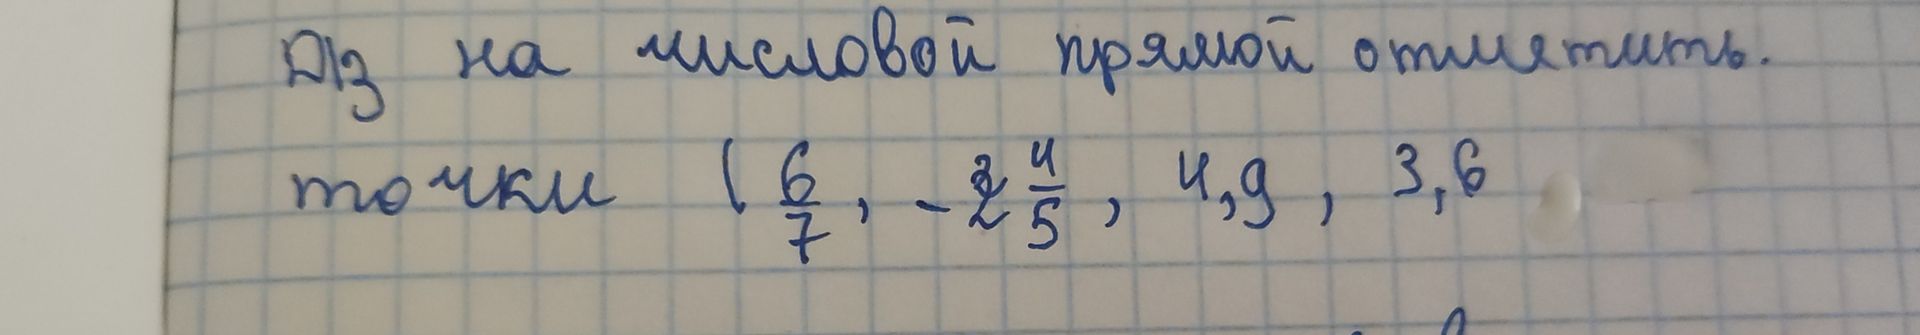 ДЗ на числовой прямой отметить.
точки ( 6/7, -2 4/5, 4,9, 3,6